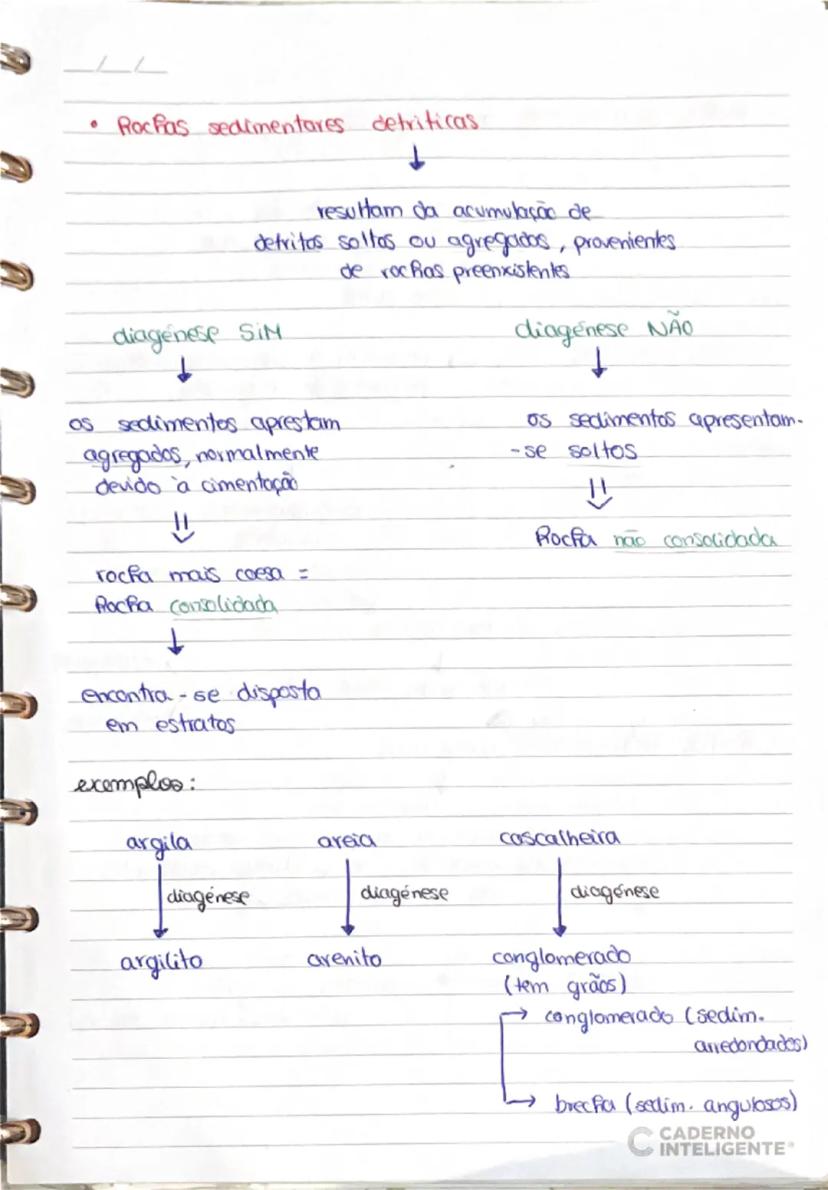 • Rochas sedimentares detríticas
resultam da acumulação de
detritos soltos ou agregados, provenientes
de rochas preenxistentes
diagénese SiM
os sedimentos aprestam
agregados, normalmente
devido à cimentação
rocha mais coesa =
Rocha consolidada
encontra-se disposta
em estratos
diagénese NÃO
os sedimentos apresentam-
-se soltos
Rocha não consolidada
exemplos:
argila
diagénese
argilito
areia
diagénese
arenito
cascalheira
diagénese
conglomerado
(tem grãos)
conglomerado (sedim.
arredondados)
brecha (sedim. angulosos)
CADERNO
INTELIGENTE®